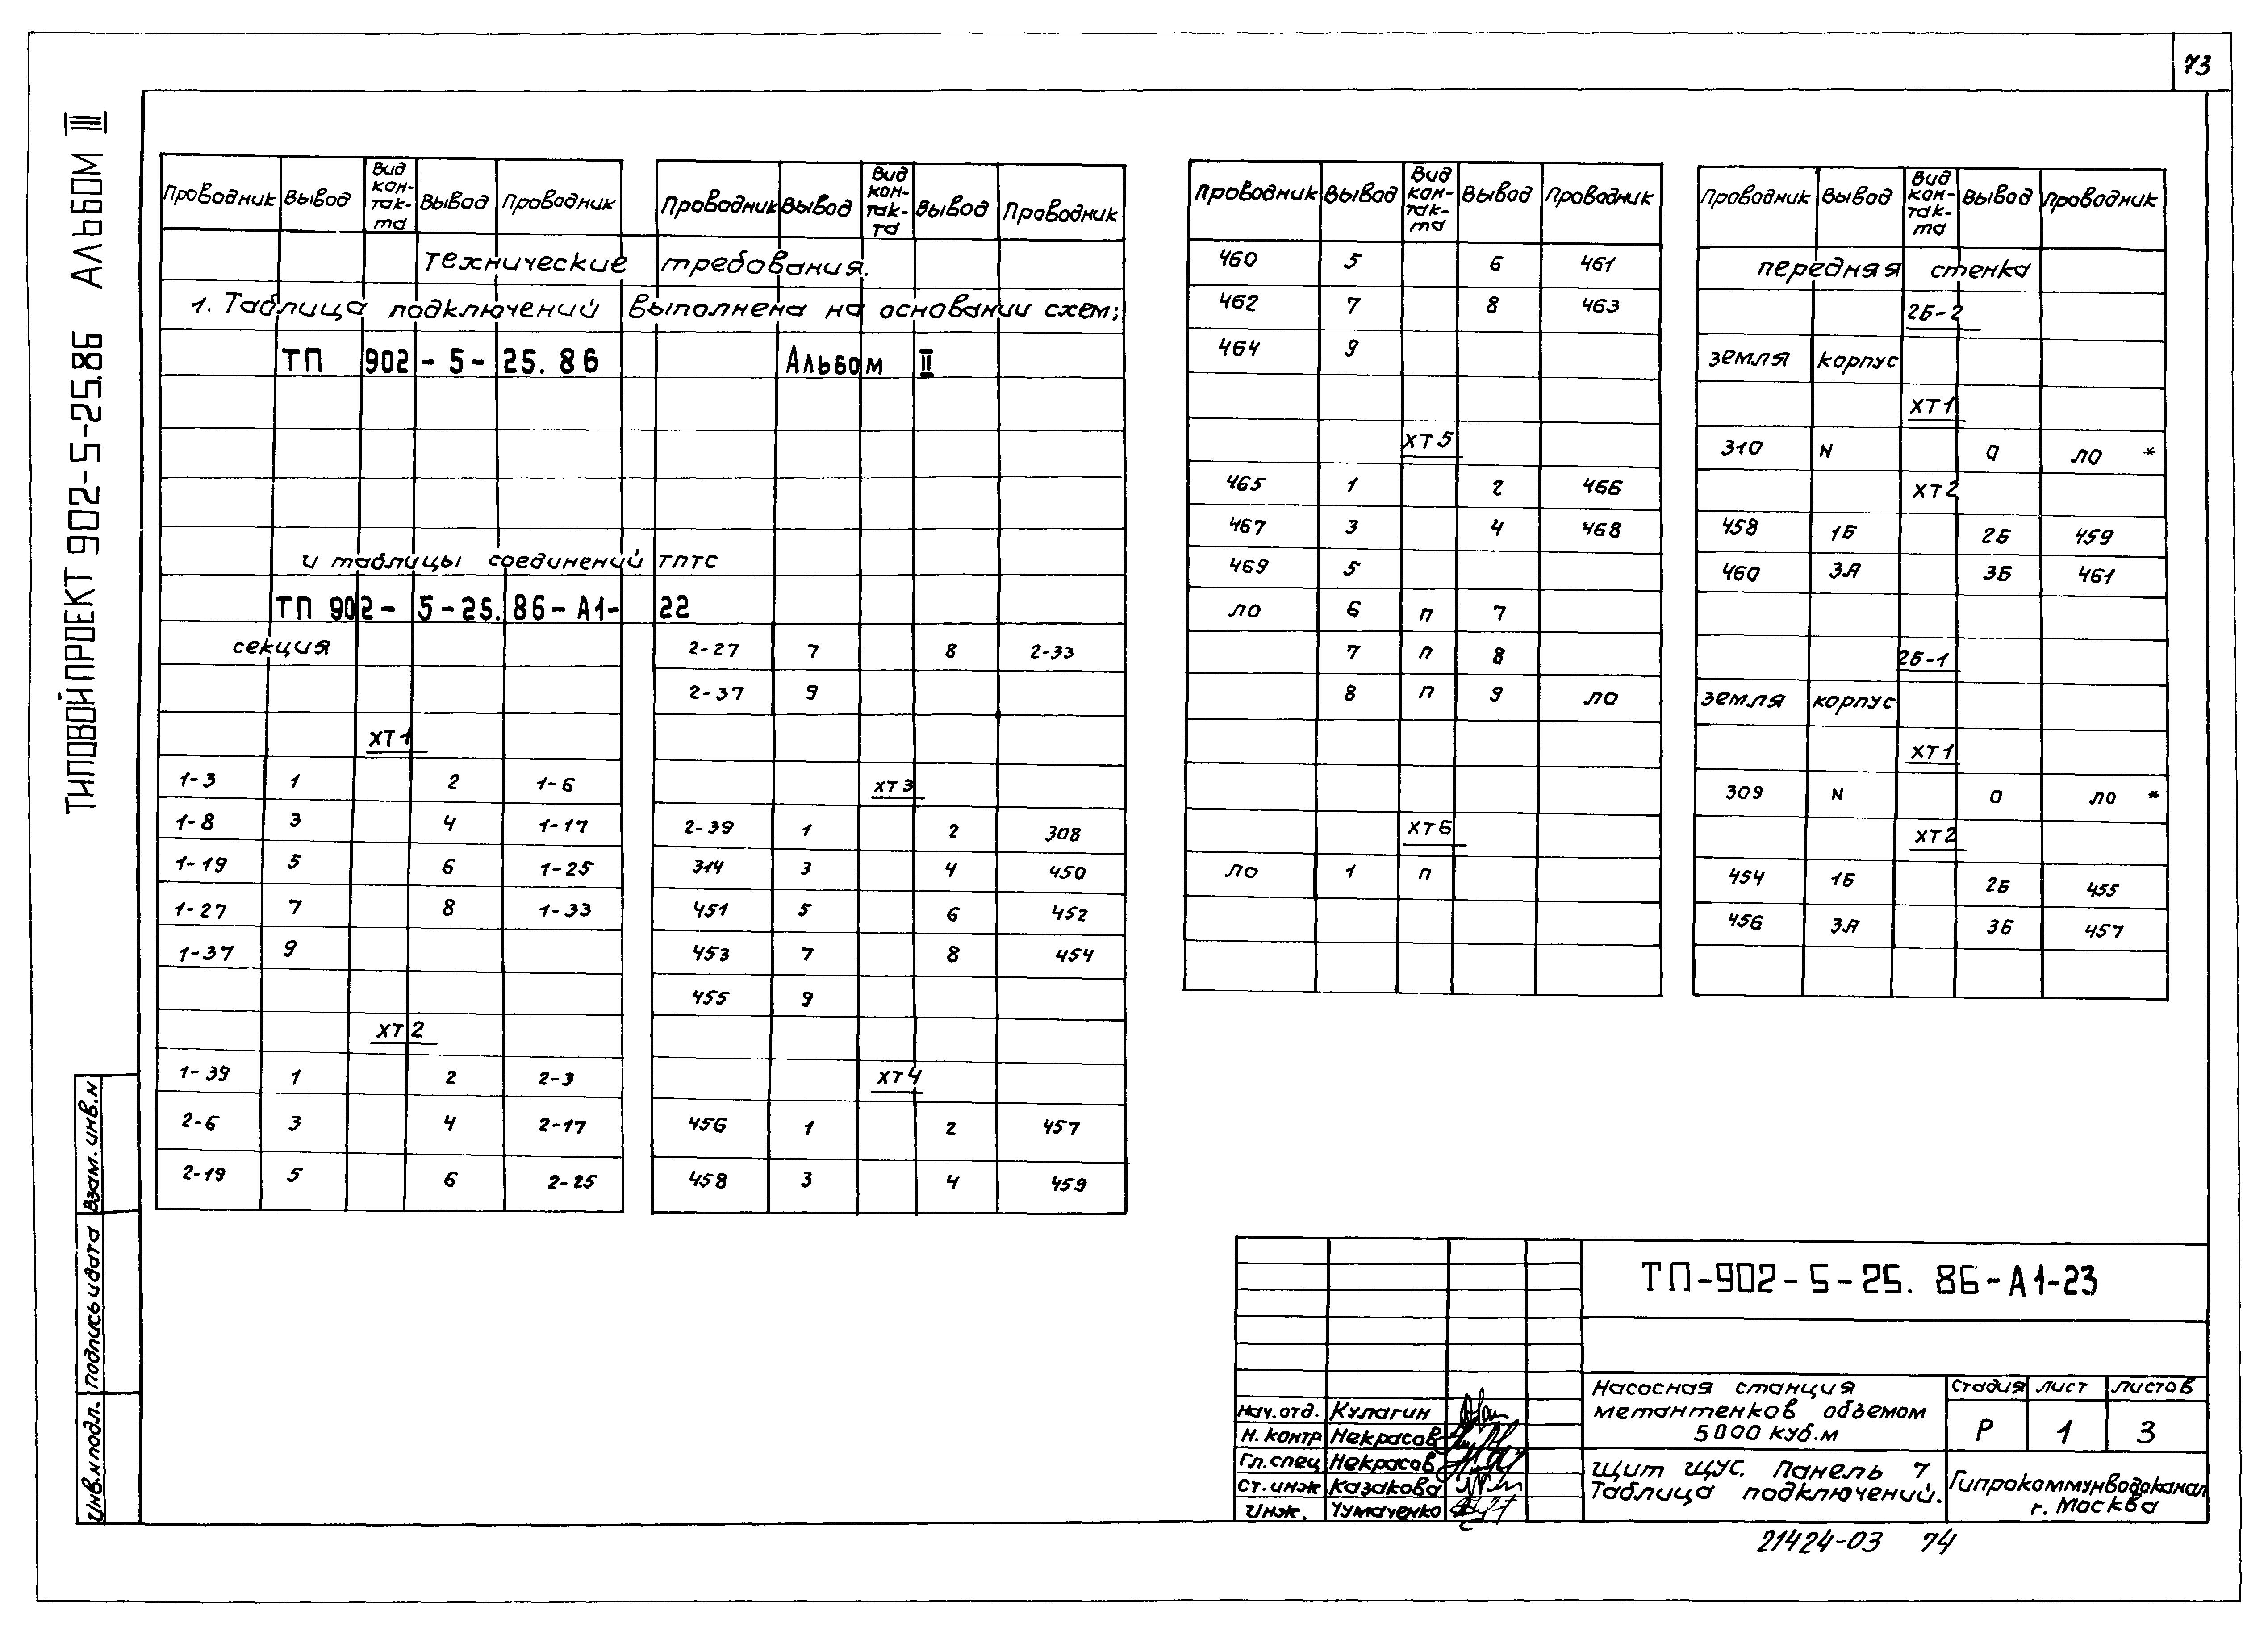 73
ТИПОВОЙ ПРОЕКТ 902-5-25.86 АЛЬБОМ III
Проводник Вывод Вид кон-так-та Вывод Проводник
Технические требования.
1. Таблица подключений выполнена на основании схем:
ТП 902-5-25.86 Альбом II
и таблицы соединений ТПТС
ТП 902-5-25.86-А1-22
секция
ХТ1
1-3 1 2 1-6
1-8 3 4 1-17
1-19 5 6 1-25
1-27 7 8 1-33
1-37 9
ХТ2
1-39 1 2 2-3
2-6 3 4 2-17
2-19 5 6 2-25
Проводник Вывод Вид кон-так-та Вывод Проводник
2-27 7 8 2-33
2-37 9
ХТ3
2-39 1 2 308
314 3 4 450
451 5 6 452
453 7 8 454
455 9
ХТ4
456 1 2 457
458 3 4 459
Проводник Вывод Вид кон-так-та Вывод Проводник
460 5 6 461
462 7 8 463
464 9
ХТ5
465 1 2 466
467 3 4 468
469 5
ЛО 6 П 7
7 П 8
8 П 9 ЛО
ХТ6
ЛО 1 П
Проводник Вывод Вид кон-так-та Вывод Проводник
передняя стенка
2Б-2
земля корпус
ХТ1
310 N О ЛО *
ХТ2
458 1Б 2Б 459
460 3А 3Б 461
2Б-1
земля корпус
ХТ1
309 N О ЛО *
ХТ2
454 1Б 2Б 455
456 3А 3Б 457
Инв.N подл. Подпись и дата Взам. инв. N
ТП-902-5-25.86-А1-23
Нач. отд. Кулагин
Н. контр Некрасов
Гл. спец Некрасов
Ст. инж Казакова
Инж. Чумаченко
Насосная станция
метантенков объемом
5000 куб.м
Стадия Лист Листов
Р 1 3
Щит ЩУС. Панель 7
Таблица подключений.
Гипрокоммунводоканал
г. Москва
21424-03 74